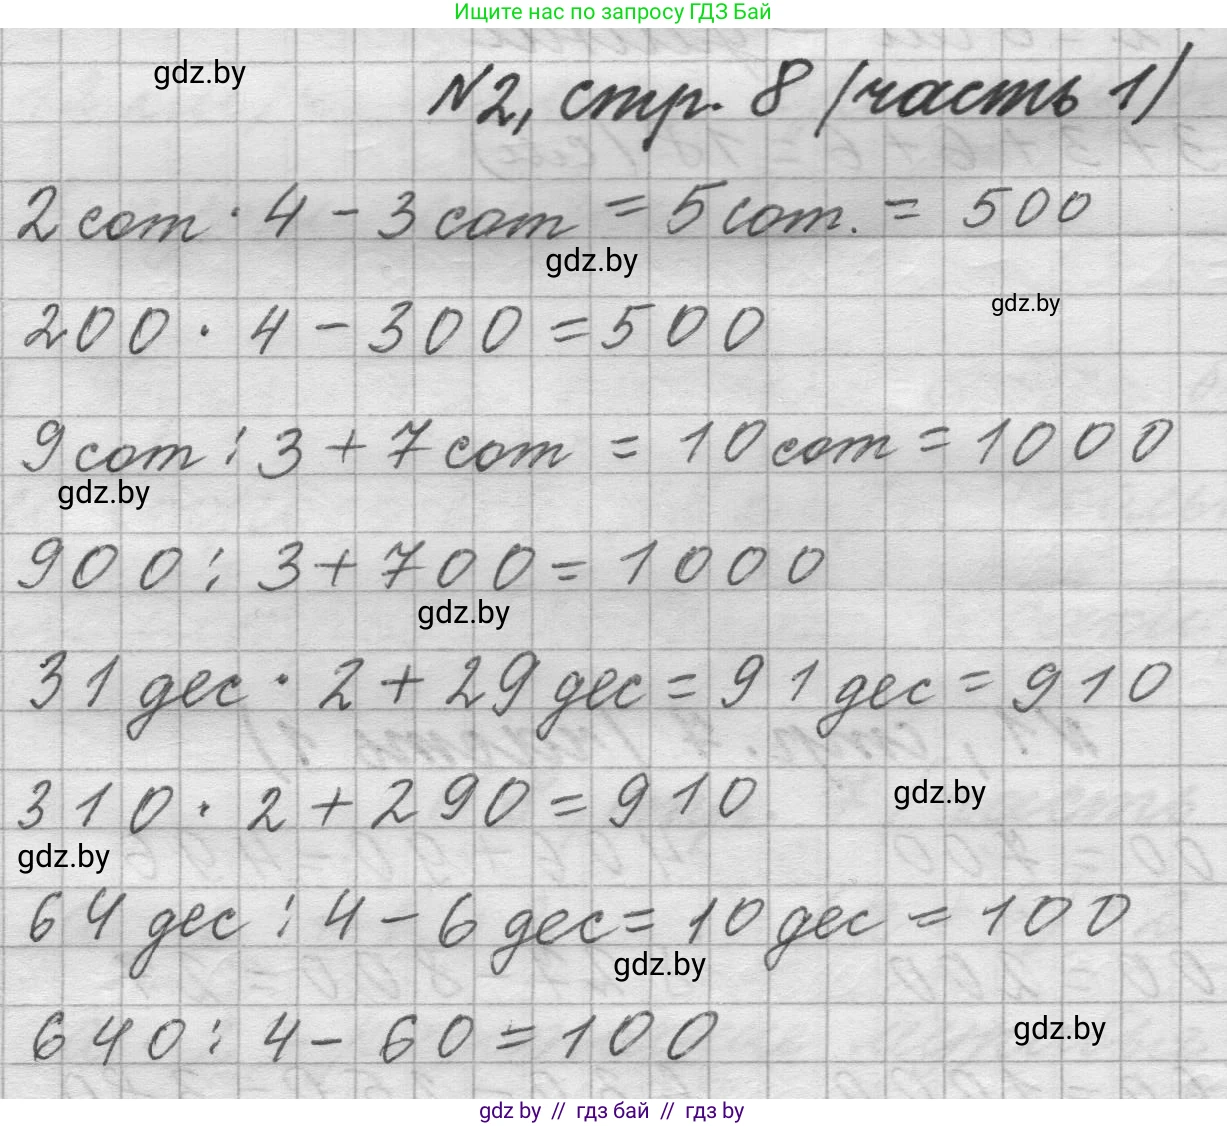 Ищите нас по запросу ГДЗ Бай
gdz.by
№2, стр. 8 (часть 1)
2 сот · 4 - 3 сот = 5 сот. = 500
gdz.by
gdz.by
200 · 4 - 300 = 500
9 сот : 3 + 7 сот = 10 сот = 1000
gdz.by
900 : 3 + 700 = 1000
gdz.by
31 дес · 2 + 29 дес = 91 дес = 910
310 · 2 + 290 = 910
gdz.by
gdz.by
64 дес : 4 - 6 дес = 10 дес = 100
gdz.by
640 : 4 - 60 = 100
gdz.by
gdz by // гдз бай // гдз by